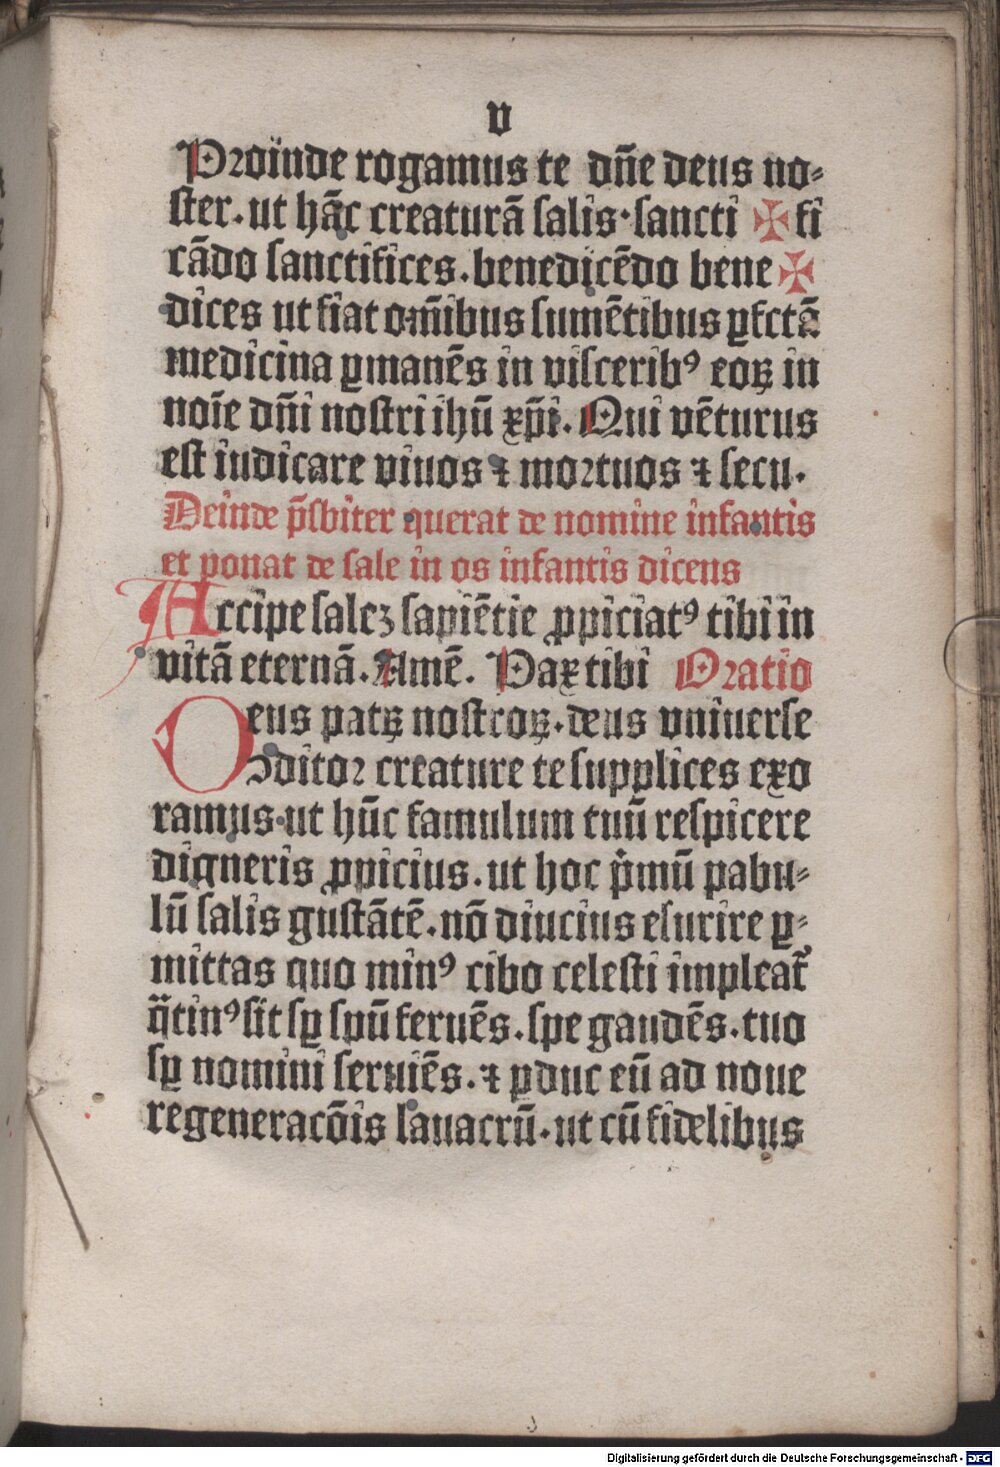 v
Proinde rogamus te dn̄e deus no⸗
ster. ut hāc creaturā salis· sancti ✠ fi
cādo sanctifices. benedicēdo bene ✠
dices ut fiat om̄ibus sumētibus ꝑfctā
medicina ꝑmanēs in visceribꝰ eoꝝ in
noīe dn̄i nostri ihū xp̄i. Qui vēturus
est iudicare viuos ⁊ moꝛtuos ⁊ secu.
Deinde p̄sbiter querat de nomine infantis
et ponat de sale in os infantis dicens
Accipe saleꝫ sapiētie ꝓpiciatꝰ tibi in
vitā eternā. Amē. Pax tibi Oꝛatio
Deus patꝝ nostroꝝ. deus vniuerse
ↄditoꝛ creature te supplices exo
ramus· ut hūc famulum tuū respicere
digneris ꝓpicius. ut hoc pͥmū pabu⸗
lū salis gustātē. nō diucius esurire ꝑ⸗
mittas quo minꝰ cibo celesti impleat᷑
q̄tinꝰ sit sꝑ spū feruēs. spe gaudēs. tuo
sꝑ nomini seruiēs. ⁊ ꝑduc eū ad noue
regeneracōis lauacrū. ut cū fidelibus
Digitalisierung gefördert durch die Deutsche Forschungsgemeinschaft - DFG